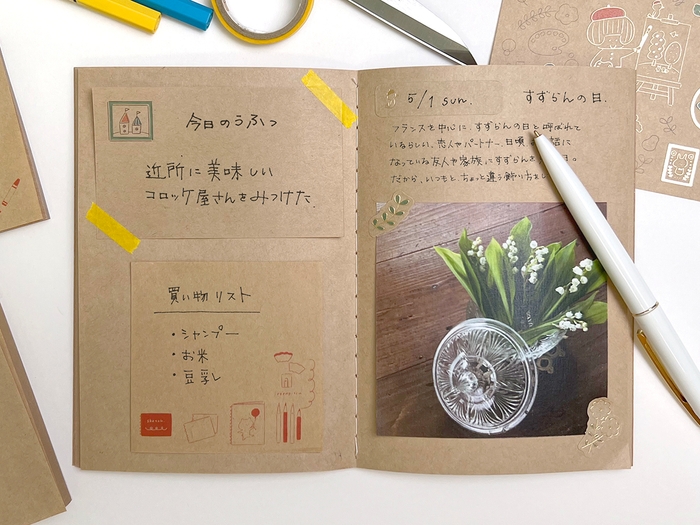 今日のうふっ
近所に美味しい
コロッケ屋さんをみつけた
買い物リスト
・シャンプー
・お米
・豆乳
5/1 sun. すずらんの日.
フランスを中心に、すずらんの日と呼ばれて
いるらしい。恋人やパートナー、日頃
なっている友人や家族にすずらんを
だから、いつもと、ちょっと違う飾り方を